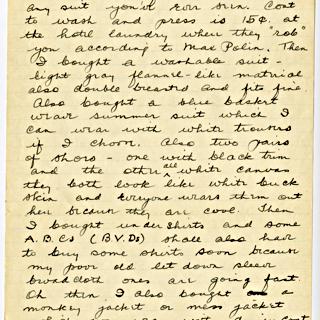 any suit you've ever seen. Cost
to wash and press is 15¢. at
the hotel laundry when they "rob"
you according to Max Polin. Then
I bought a washable suit -
light gray flannel-like material
also double breasted and fits fine.
Also bought a blue basket
weave summer suit which I
can wear with white trousers
if I choose. Also two pairs
of shoes - one with black trim
and the other all white canvas
they both look like white buck
skin and everyone wears them out
here because they are cool. Then
I bought undershirts and some
A.B.Cs (B.V.Ds) shall also have
to buy some shirts soon because
my poor old let down sleeve
broadcloth ones are going fast.
Oh then I also bought a
monkey jacket or mess jacket